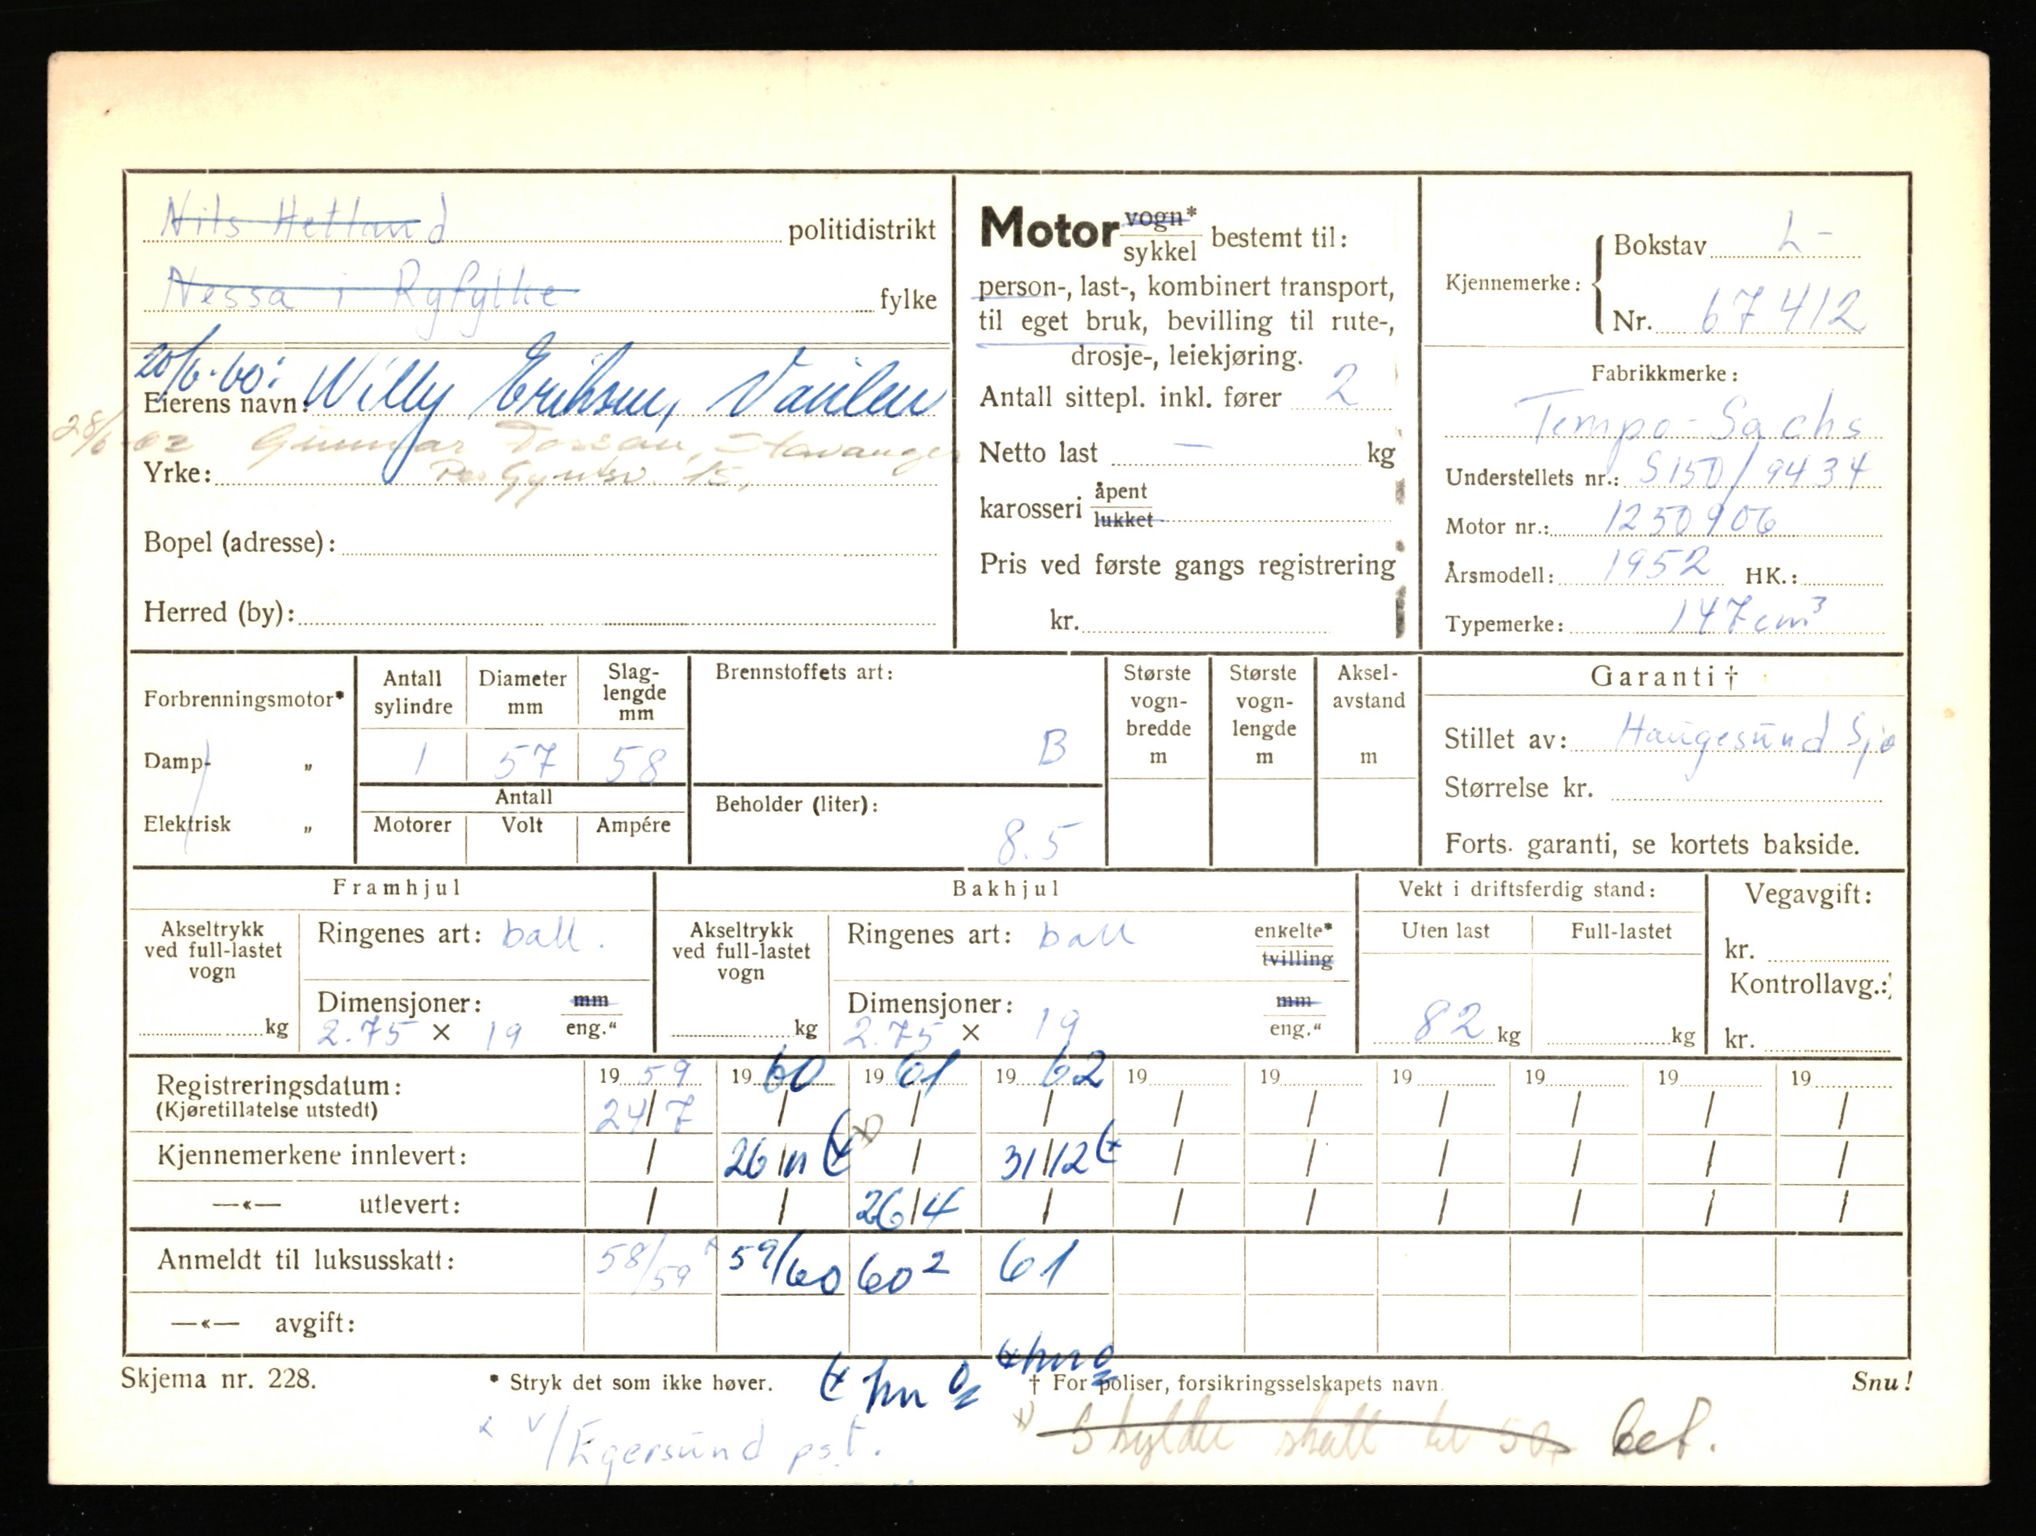 Nils Hetland politidistrikt
Nessa i Ryfylke fylke
20/6-60: Willy Eriksen, Vaulen
Eierens navn:
28/6 62 Gunnar Torsan, Stavanger
Yrke: Per Gyntsv. 15,
Bopel (adresse):
Herred (by):
Motor vogn* / sykkel bestemt til:
person-, last-, kombinert transport,
til eget bruk, bevilling til rute-,
drosje-, leiekjøring.
Antall sittepl. inkl. fører 2
Netto last — kg
karosseri åpent / lukket
Pris ved første gangs registrering
kr.
Kjennemerke: Bokstav L-
Nr. 67412
Fabrikkmerke:
Tempo-Sachs
Understellets nr.: S150/9434
Motor nr.: 1250906
Årsmodell: 1952 HK.:
Typemerke: 147 cm³
Forbrenningsmotor*
Damp- „
Elektrisk „
Antall sylindre 1
Diameter mm 57
Slag-lengde mm 58
Antall
Motorer Volt Ampére
Brennstoffets art: B
Beholder (liter): 8.5
Største vogn-bredde m
Største vogn-lengde m
Aksel-avstand m
Garanti †
Stillet av: Haugesund Sjø
Størrelse kr.
Forts. garanti, se kortets bakside.
Framhjul
Akseltrykk ved full-lastet vogn kg
Ringenes art: ball.
Dimensjoner: mm / eng."
2.75 × 19
Bakhjul
Akseltrykk ved full-lastet vogn kg
Ringenes art: ball enkelte* / tvilling
Dimensjoner: mm / eng."
2.75 × 19
Vekt i driftsferdig stand:
Uten last Full-lastet
82 kg kg
Vegavgift:
kr.
Kontrollavg.:
kr.
Registreringsdatum: 1959 1960 1961 1962 19 19 19 19 19 19
(Kjøretillatelse utstedt) 24/7 / / / / / / / / /
Kjennemerkene innlevert: / 26/11 / 31/12 / / / / / /
—«— utlevert: / / 26/4 / / / / / / /
Anmeldt til luksusskatt: 58/59 59/60 60² 61
—«— avgift:
Skjema nr. 228.
* Stryk det som ikke høver.
† For poliser, forsikringsselskapets navn.
Snu!
x v/Egersund pst.
Skylder skatt bet.